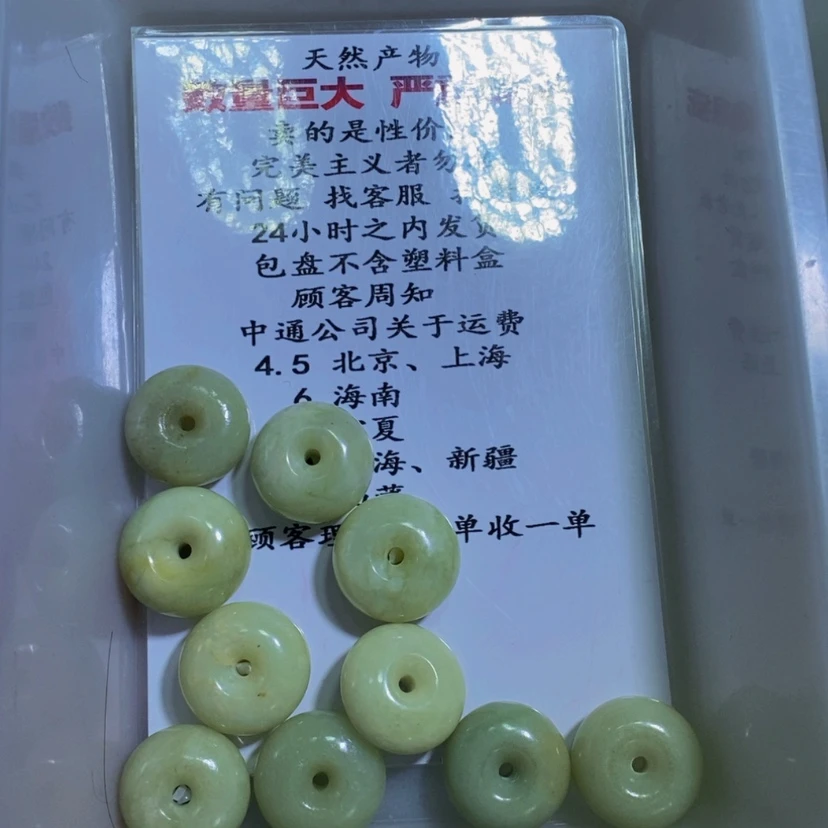 天然产物
数量巨大 严
卖的是性价
完美主义者勿
有问题 找客服
24小时之内发货
包盘不含塑料盒
顾客周知
中通公司关于运费
4.5 北京、上海
6 海南
夏
海、新疆
顾客理 单收一单